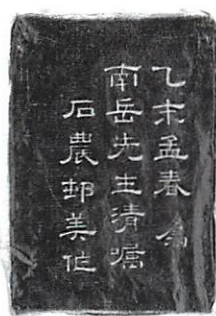 乙未孟春為
南岳先生清囑
石農邨美作